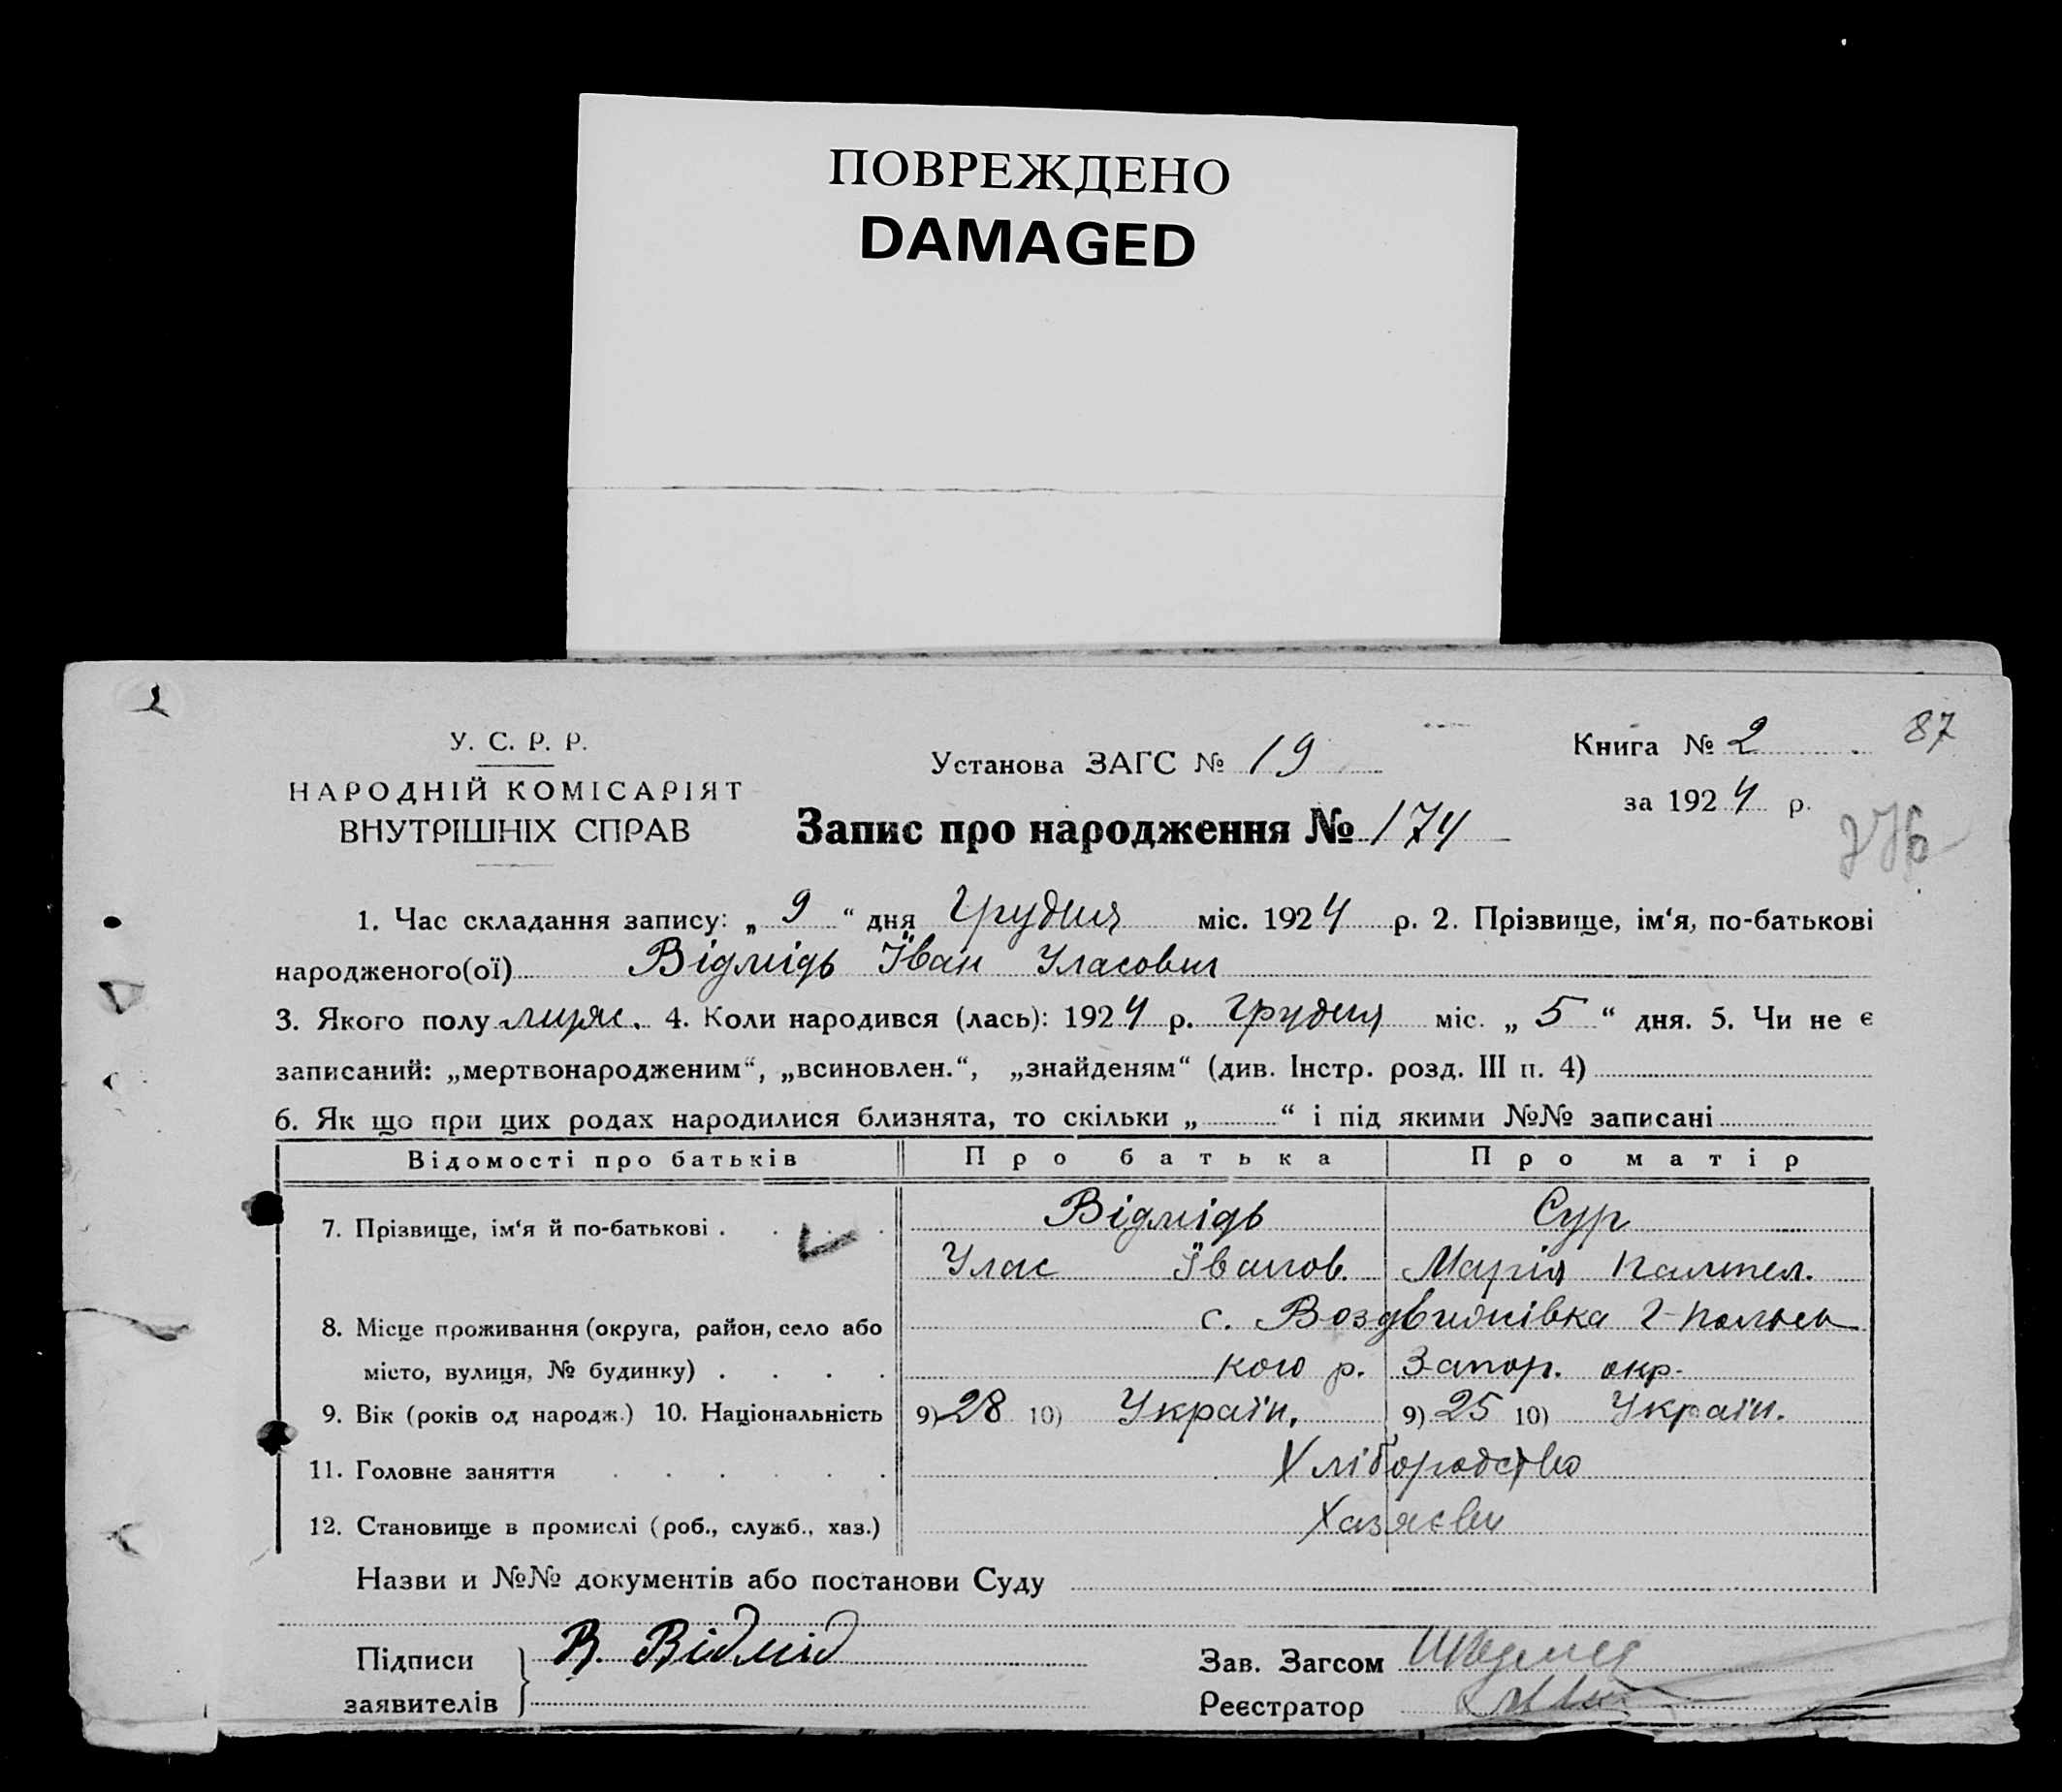 ПОВРЕЖДЕНО
DAMAGED
2
У. С. Р. Р.
НАРОДНІЙ КОМІСАРІЯТ
ВНУТРІШНІХ СПРАВ
Установа ЗАГС № 19
Книга № 2
87
за 1924 р.
Запис про народження № 174
1. Час складання запису: „ 9 “ дня Грудня міс. 1924 р. 2. Прізвище, ім‘я, по-батькові
народженого(ої) Відмідь Їван Уласович
3. Якого полу 4. Коли народився (лась): 1924 р. Грудня міс. „ 5 “ дня. 5. Чи не є
записаний: „мертвонародженим“, „всиновлен.“, „знайденям“ (див. Інстр. розд. III п. 4)
6. Як що при цих родах народилися близнята, то скільки „ “ і під якими №№ записані
Відомості про батьків Про батька Про матір
7. Прізвище, ім‘я й по-батькові . . . . Відмідь Сур
Улас Їванов. Марія Пантел.
8. Місце проживання (округа, район, село або с. Воздвижівка Г-Польсь
місто, вулиця, № будинку) . . . . кого р. Запор. окр.
9. Вік (років од народж.) 10. Національність 9) 28 10) Україн. 9) 25 10) Україн.
11. Головне заняття . . . . . . Хліборобство
12. Становище в промислі (роб., служб., хаз.) Хазяєви
Назви и №№ документів або постанови Суду
Підписи В. Відмід
заявителів
Зав. Загсом
Реєстратор